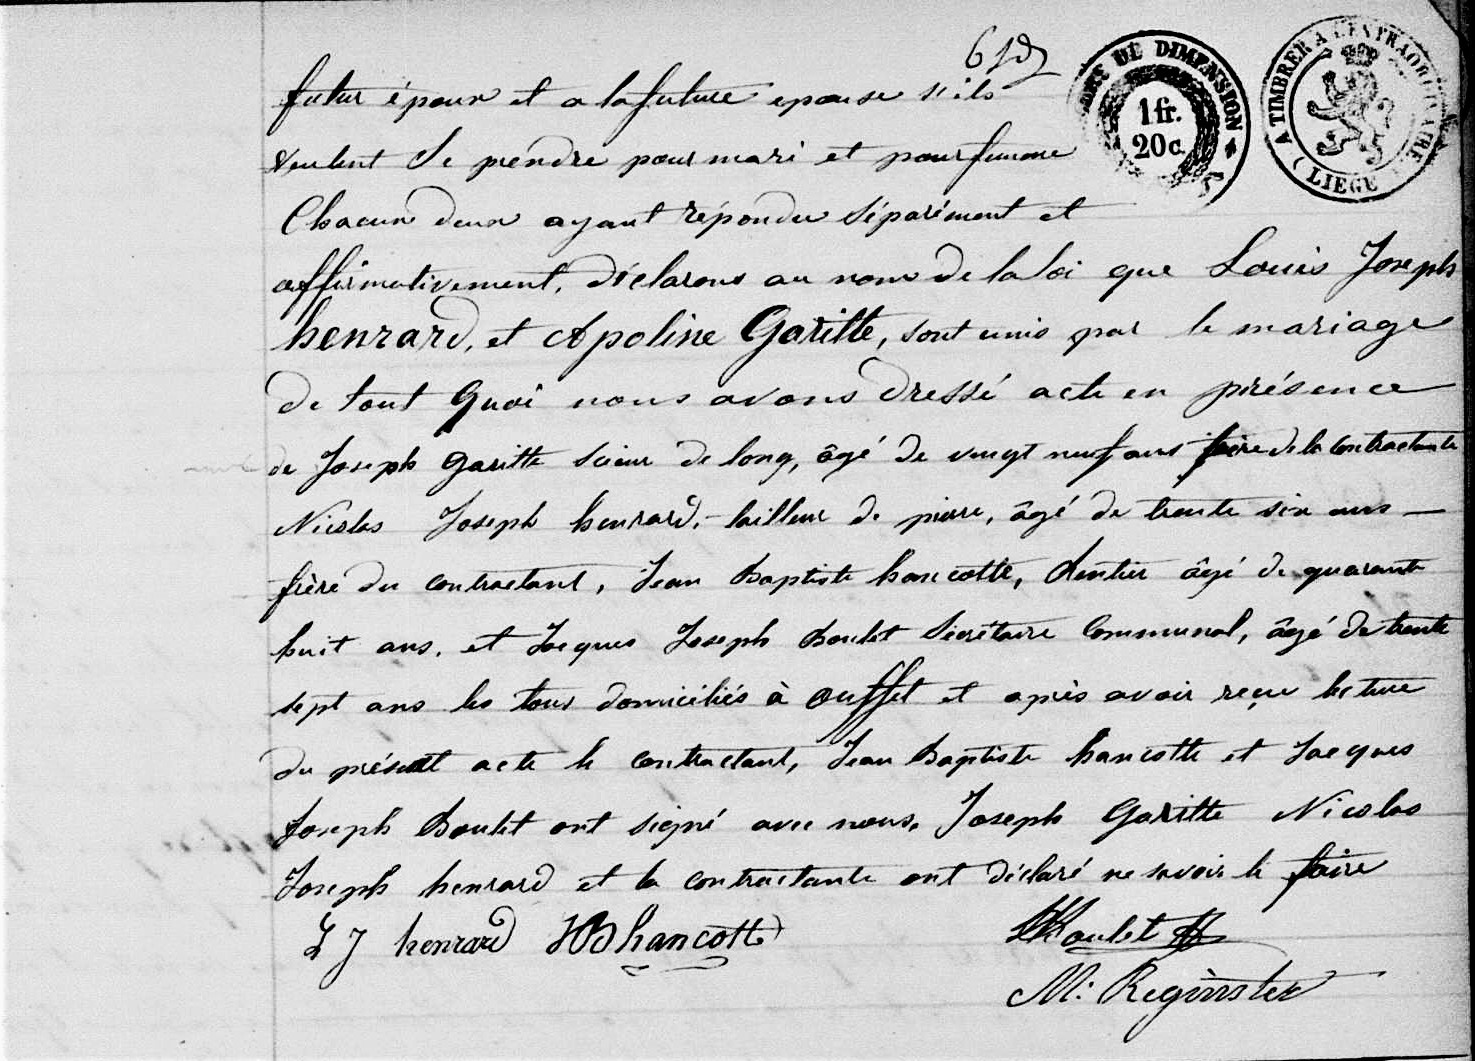 TIMBRE DE DIMENSION
1 fr.
20 c.
A TIMBRER A L'EXTRAORDINAIRE
( LIEGE )
futur époux et a la future epouse s'ils
veulent se prendre pour mari et pour femme
Chacun deux ayant répondu séparément et
affirmativement, déclarons au nom de la loi que Louis Joseph
henrard, et Apoline Garitte, sont unis par le mariage
de tout quoi nous avons dressé acte en présence
de Joseph Garitte scieur de long, âgé de vingt neuf ans frère de la contractante
Nicolas Joseph henrard, tailleur de pierre, âgé de trente six ans —
frère du contractant, Jean Baptiste hancotte, Rentier âgé de quarante
huit ans, et Jacques Joseph Boulet Sécrétaire Communal, âgé de trente
sept ans les tous domiciliés à Ouffet et après avoir reçu lecture
du présent acte le contractant, Jean Baptiste hancotte et Jacques
Joseph Boulet ont signé avec nous, Joseph Garitte Nicolas
Joseph henrard et la contractante ont déclaré ne savoir le faire
L J henrard JB hancotte
JJBoulet
M. Reginster